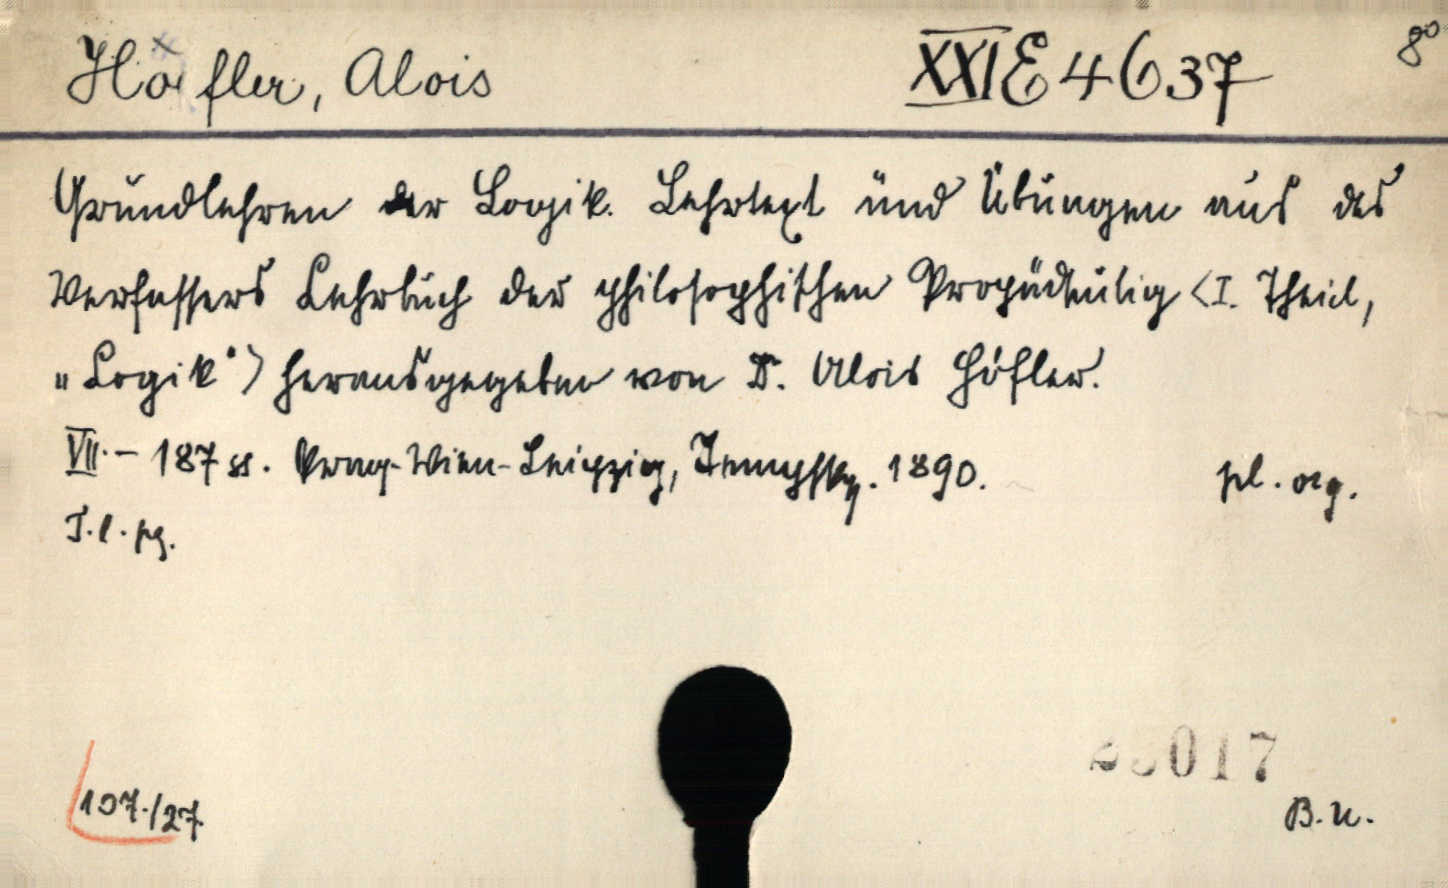 Höfler, Alois XXI E 4637 8°
Grundlehren der Logik. Lehrtext und Übungen aus des
Verfassers Lehrbuch der philosophischen Propädeutig <I. Theil,
"Logik"> herausgegeben von Dr. Alois Höfler.
VII.- 187 ss. Prag-Wien-Leipzig, Tempsky. 1890. pl. org.
T. l. pg.
017
107./27
B. U.